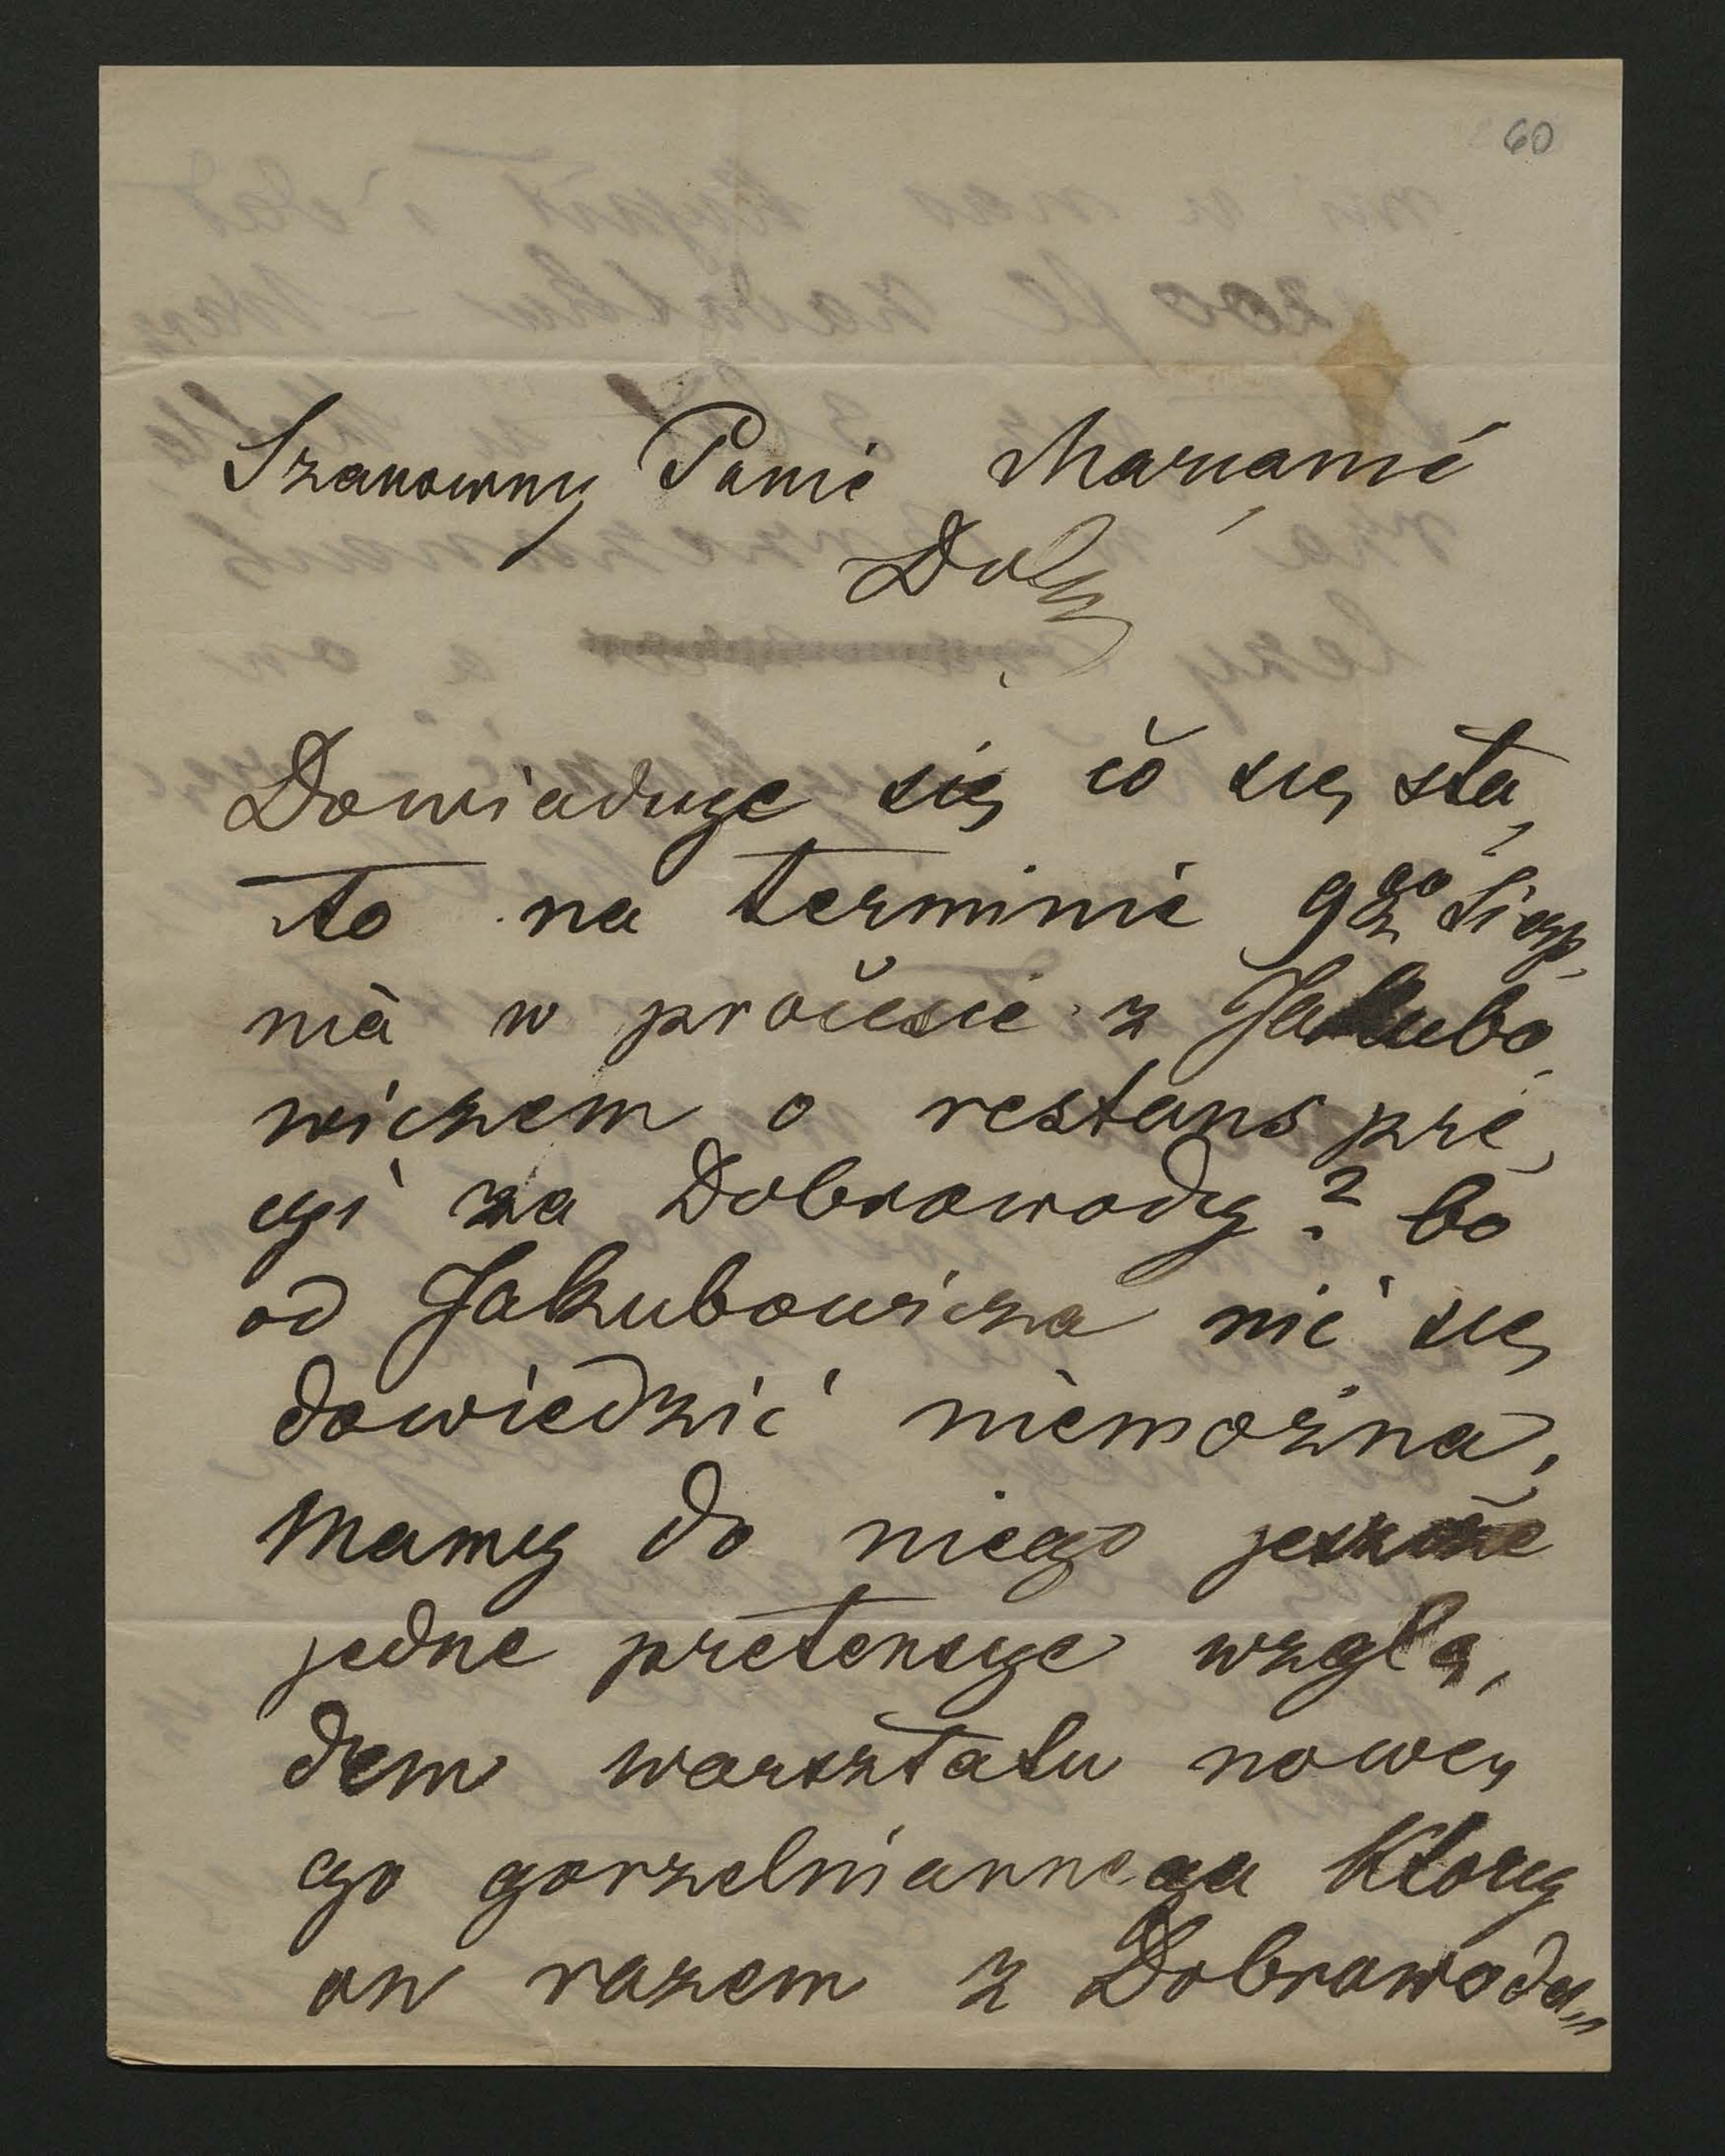 60
Szanowny Panie Maryanie
Dowiaduje się co się sta,
ło na terminie 9go Sierp,
nia w procesie z Jakubo,
wiczem o restans pre,
gi za Dobrowody? bo
od Jakubowicza nic się
dowiedzić niemożna,
Mamy do niego jeszcze
jedne pretensye wzglę,
dem warsztatu nowe,
go gorzelnianego Ktory
on razem z Dobrowoda,,